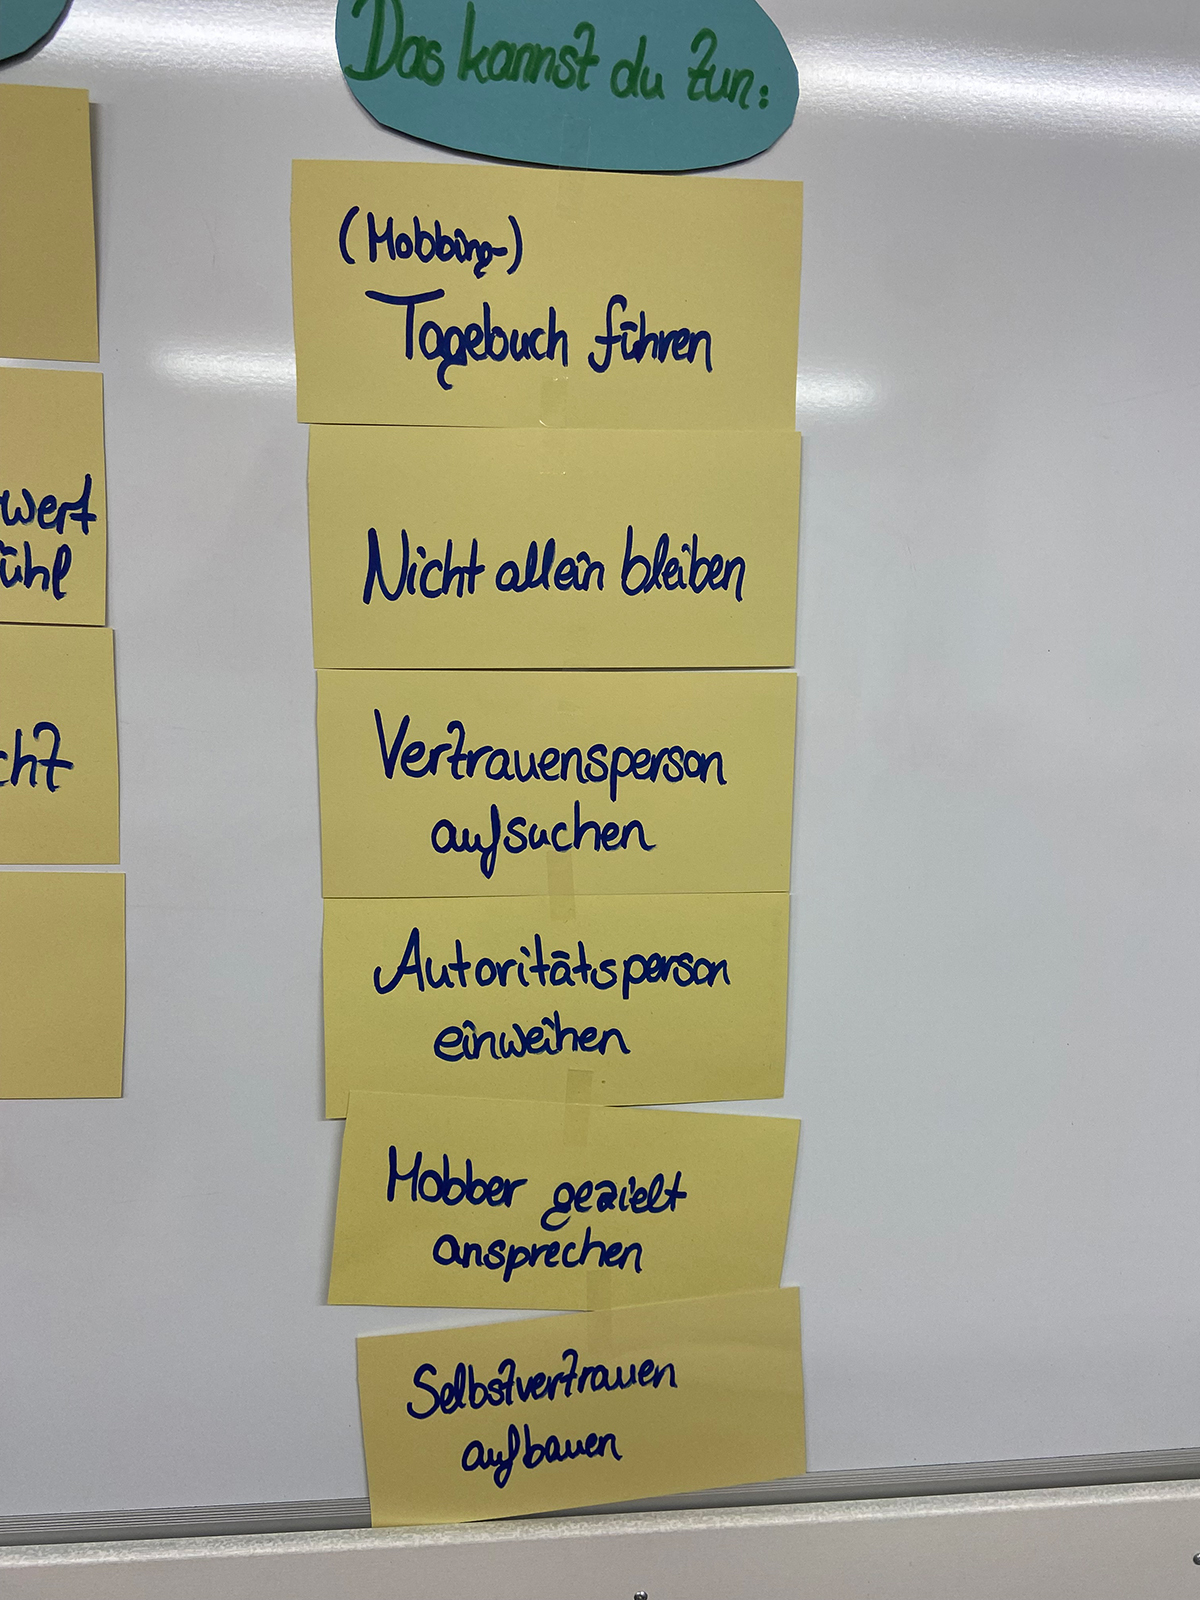 Das kannst du tun:
(Mobbing-)
Tagebuch führen
Nicht allein bleiben
Vertrauensperson
aufsuchen
Autoritätsperson
einweihen
Mobber gezielt
ansprechen
Selbstvertrauen
aufbauen
wert
ühl
cht